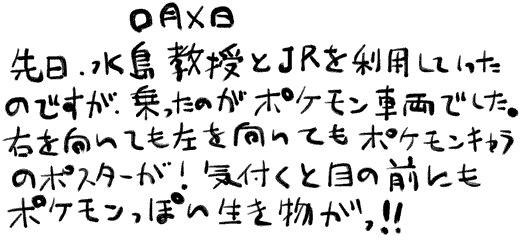 〇月×日
先日、水島教授とJRを利用していった
のですが、乗ったのがポケモン車両でした。
右を向いても左を向いてもポケモンキャラ
のポスターが!気付くと目の前にも
ポケモンっぽい生き物がっ!!